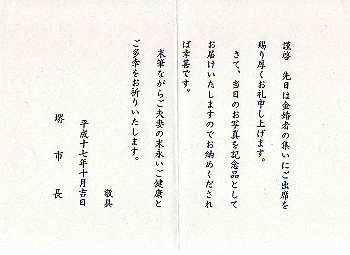 謹啓　先日は金婚者の集いにご出席を
賜り厚くお礼申し上げます。
さて、当日のお写真を記念品として
お届けいたしますのでお納めくだされ
ば幸甚です。
末筆ながらご夫妻の末永いご健康と
ご多幸をお祈りいたします。
敬具
平成十七年十月吉日
堺市長